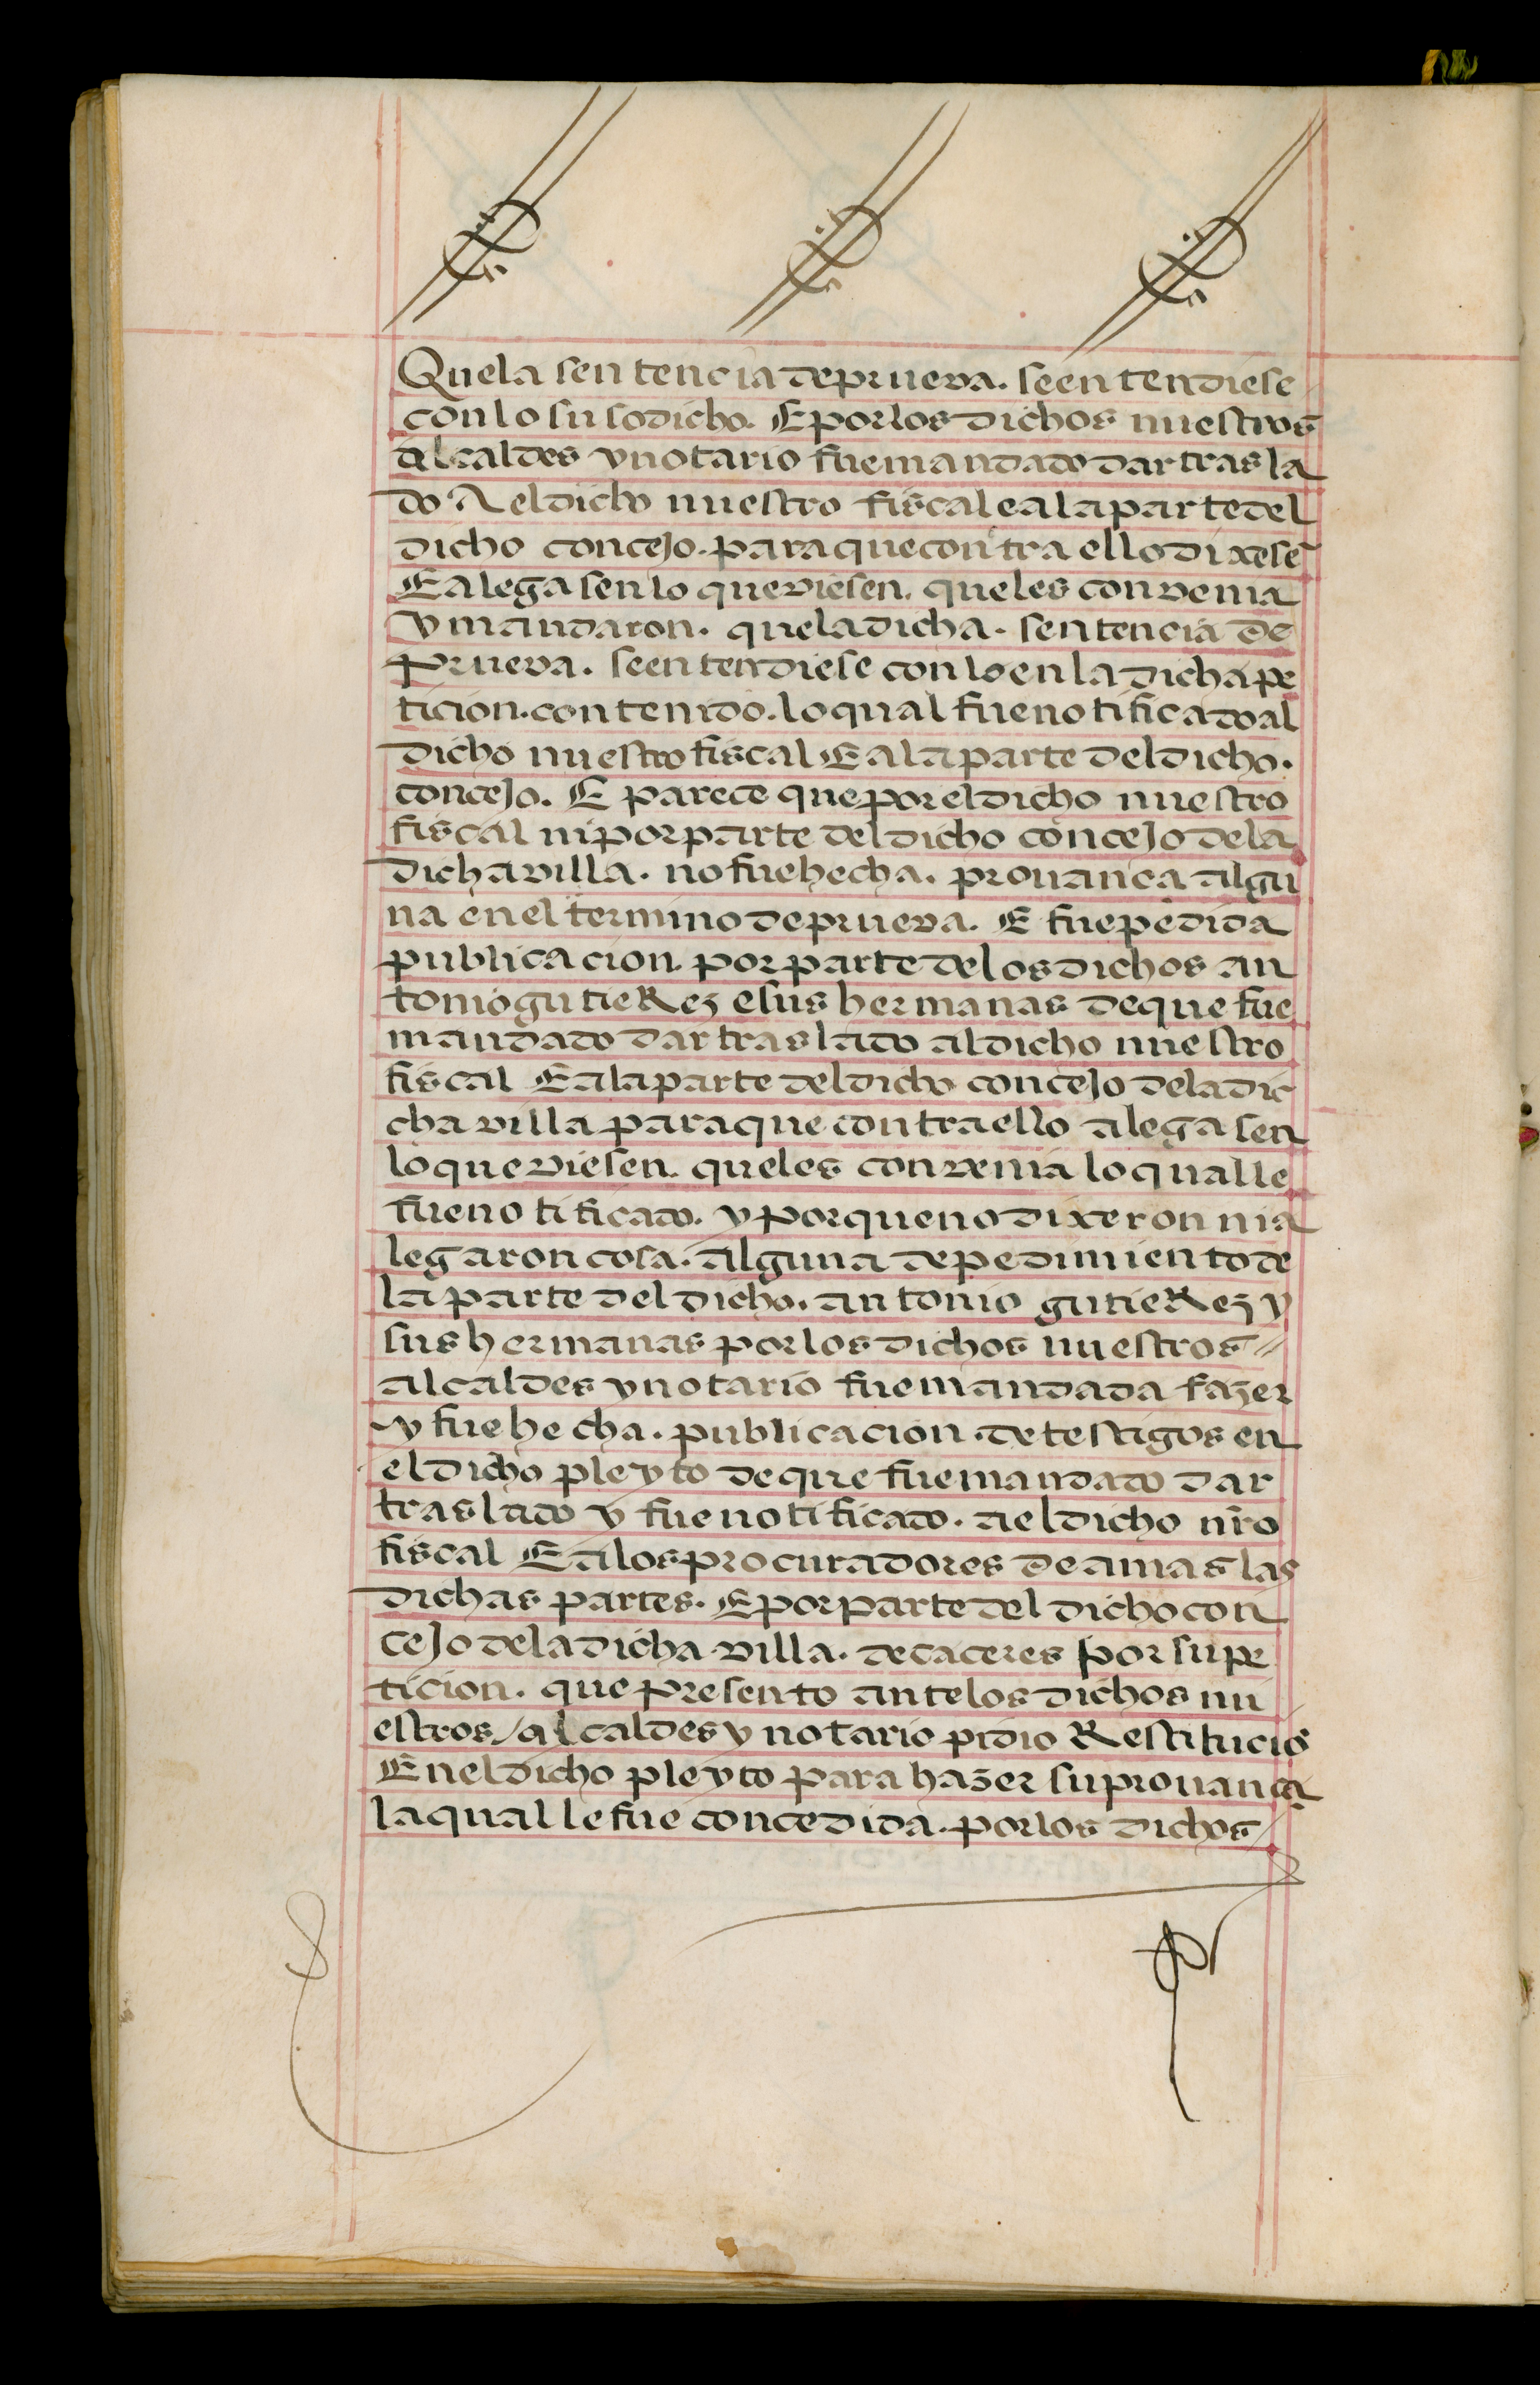 Que la sentencia de prueva. se entendiese
con lo suso dicho. E por los dichos nuestros
alcaldes y notario fue mandado dar trasla
do A el dicho nuestro fiscal e a la parte del
dicho concejo. para que contra ello dixesē
E alegasen lo que viesen. que les convenia
y mandaron. que la dicha. sentencia de
prueva. se entendiese con lo en la dicha pe
ticion. contenido. lo qual fue notificado al
dicho nuestro fiscal E a la parte del dicho.
concejo. E parece que por el dicho nuestro
fiscal ni por parte del dicho concejo de la
dicha villa. no fue hecha. provança algu
na en el termino de prueva. E fue pedida
publicacion por parte de los dichos an
tonio gutieRez e sus hermanas de que fue
mandado dar traslado al dicho nuestro
fiscal E a la parte del dicho concejo de la dic
cha villa para que contra ello alegasen
lo que viesen que les convenia lo qual le
fue notificado. y porque no dixeron ni a
legaron cosa. alguna de pedimiento de
la parte del dicho. antonio gutieRez y
sus hermanas por los dichos nuestros
alcaldes y notario fue mandada fazer
y fue hecha. publicacion. de testigos en
el dicho pleyto de que fue mandado dar
traslado y fue notificado. a el dicho nr̄o
fiscal E a los procuradores de amas las
dichas partes. E por parte del dicho con
cejo de la dicha villa. de caceres por su pe
ticion. que presento ante los dichos nu
estros / alcaldes y notario pidio Restituciō
En el dicho pleyto para hazer su provança
la qual le fue concedida. por los dichos